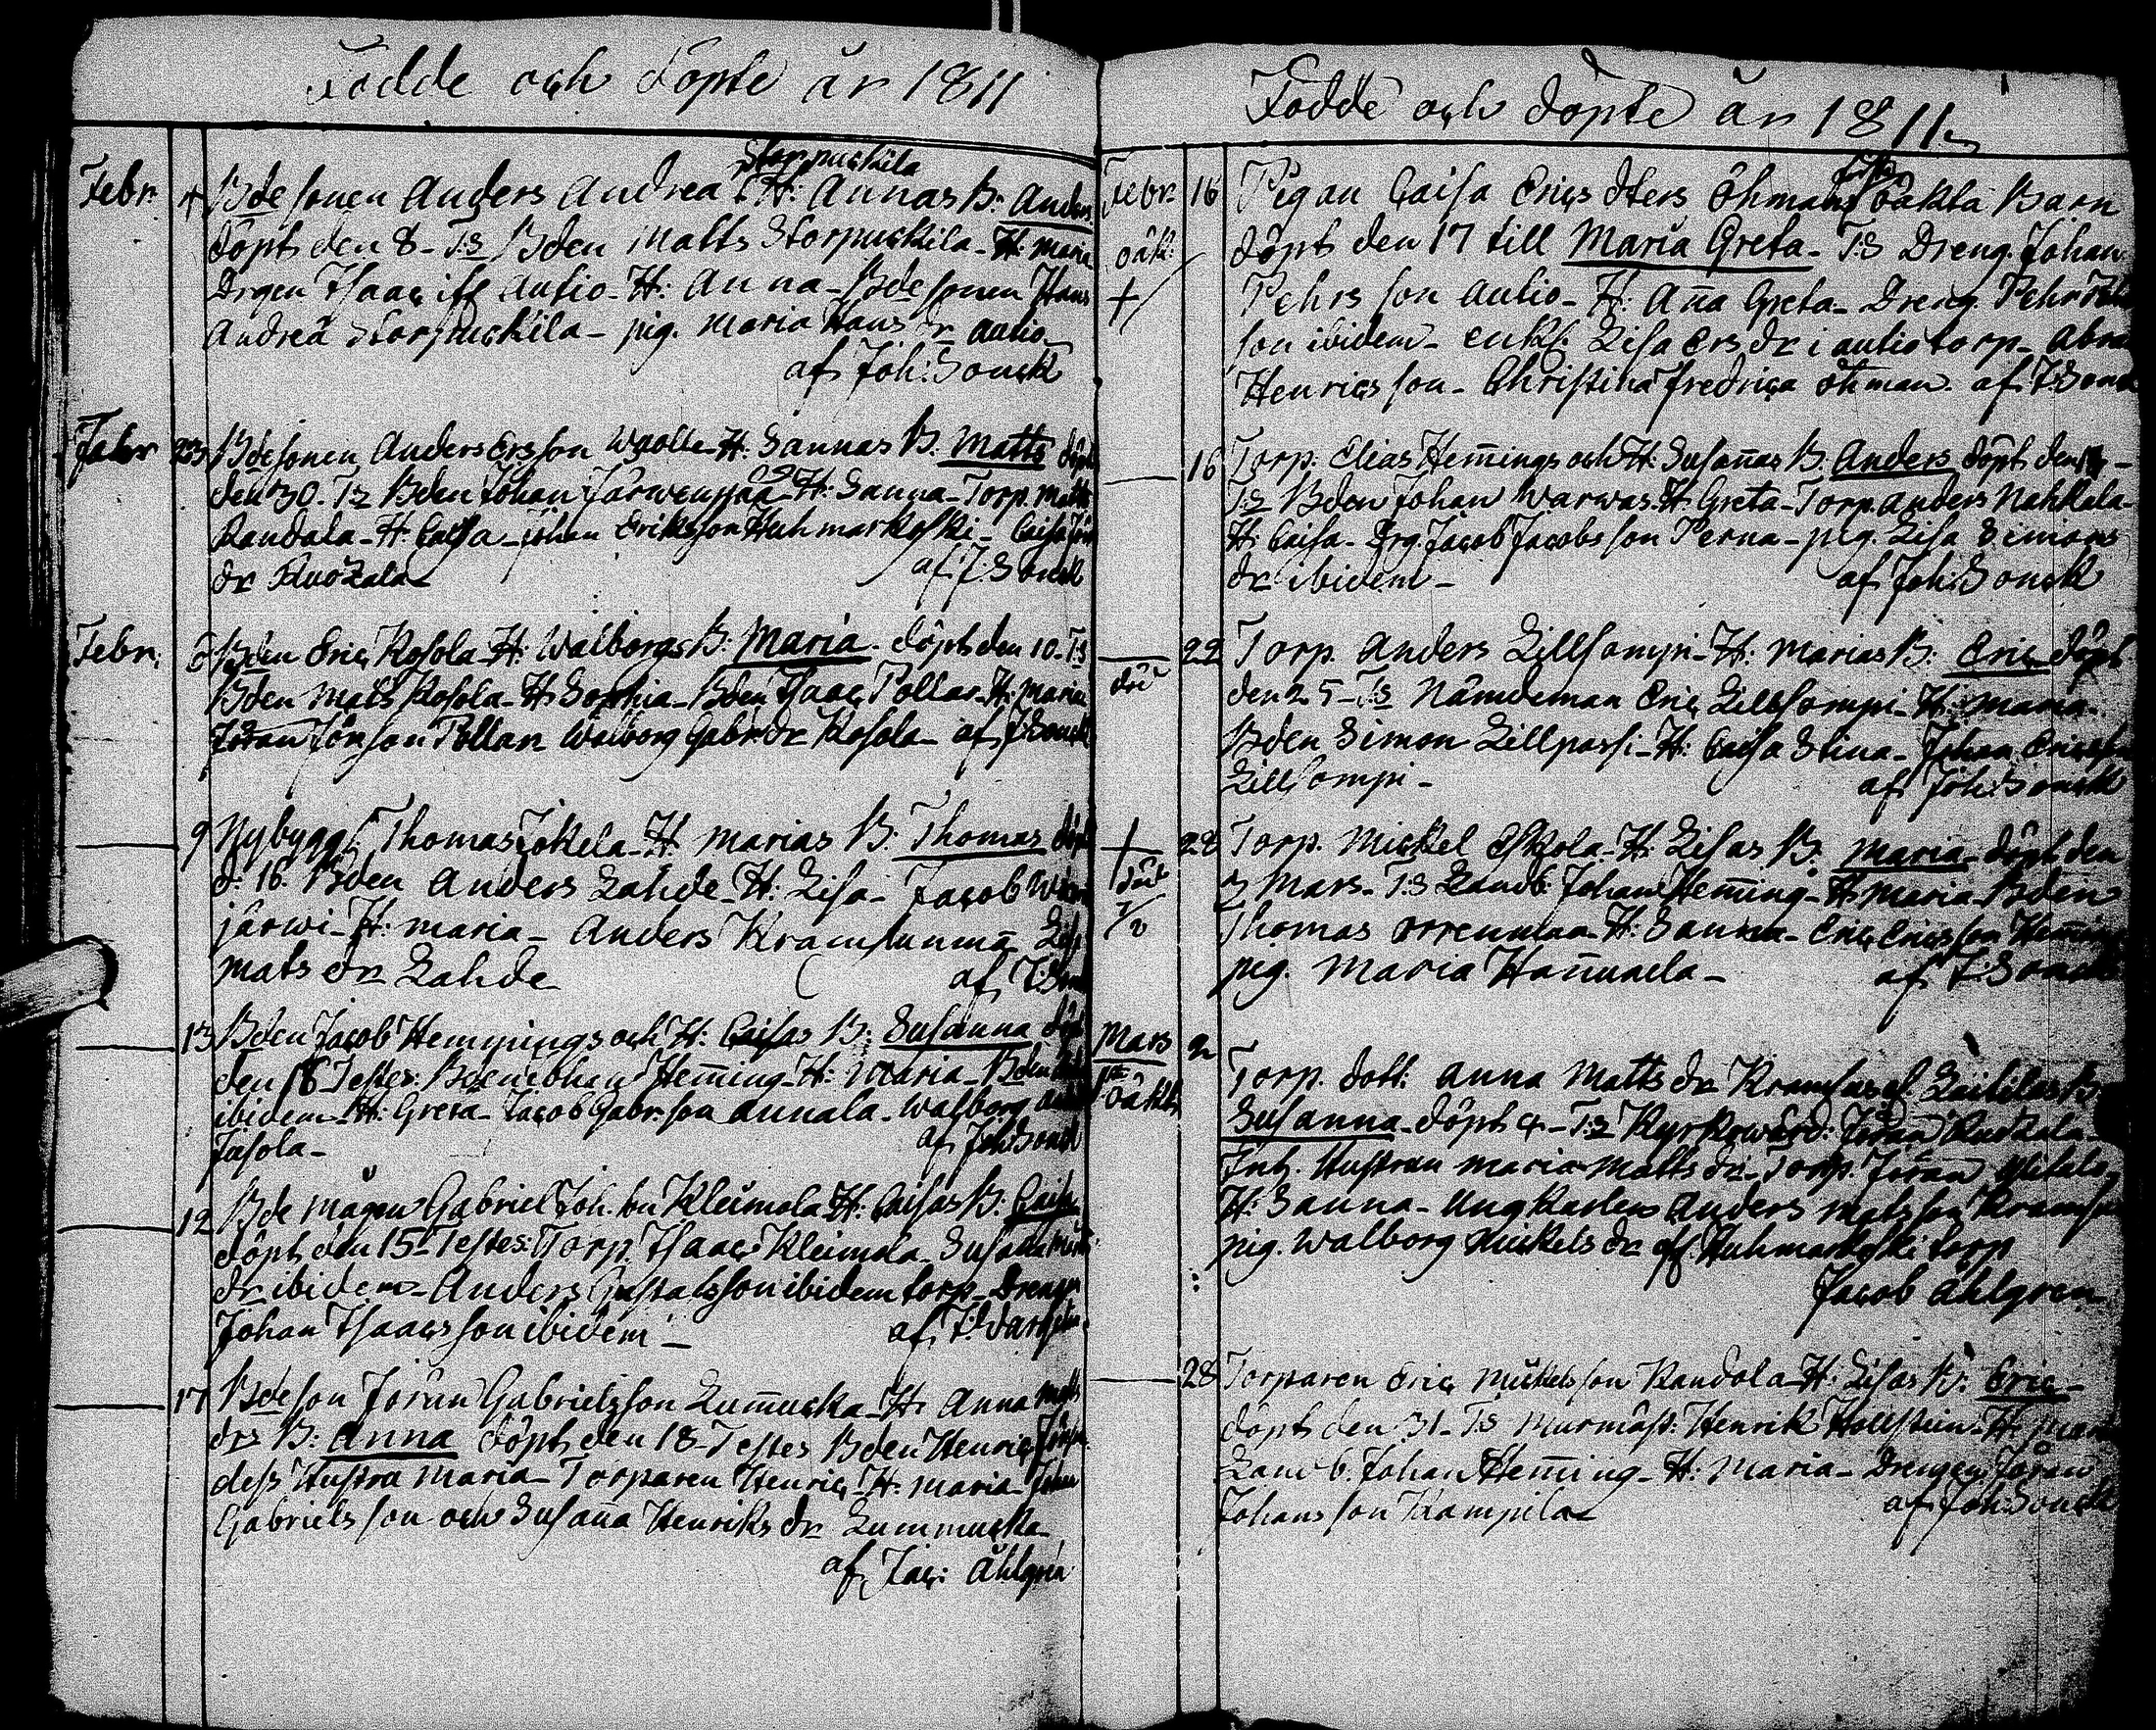 Födde och döpte år 1811
Febr. 4 Bde sonen Anders Andreæ Storpuckila H: Annas B: Anders
döpt den 8 - T:s Bden Matts Storpuckila - H: Maria
Drgen Isaac Autio - H: Anna - Bde sonen Hans
Andreæ Storpuckila - pig. Maria Hans dr Autio
af Joh: Sonck
23 Bdesonen Anders Ersson H: Sannas B: Matts döpt
den 30. T:s Bden Johan H: Sanna - Torp. Matts
Kandala - H: Caisa - Johan Eriksson Huhmarkoski - Caisa
dr af J: Sonck
Febr. 6 Bden Eric Kosola - H: Walborgs B: Maria - döpt den 10 - T:s
Bden Mats Kosola - H: Sophia - Bden Isaac Pollar - H: Maria
Jöran Pollar Walborg Gabr. dr Kosola - af J: Sonck
9 Nybygg. Thomas Jokela - H: Marias B. Thomas döpt
d: 16. Bden Anders Lahde - H: Lisa - Jacob
järwi - H: Maria - Anders Kramsunmä
Mats dr Lahde af J: Sonck
13 Bden Jacob Hemmings och H: Caisas B: Susanna döpt
den 16 Testes: Bden Johan Heming - H: Maria - Bden
ibidem - H: Greta - Jacob Gabr. son Annala - Walborg
Jasola - af Joh: Sonck
12 Bde mågen Gabriel Joh. son Kleimola H: Caisas B: Caisa
döpt den 15 - Testes: Torp. Isaac Kleimola - Susanna
dr ibidem - Anders Gustafsson ibidem torp - Drengen
Johan Isaacs son ibidem - af J:
17 Bde son Jöran Gabrielsson Lummucka - H: Anna Matts
drs B: Anna döpt den 18 - Testes Bden Henric
dess Hustra Maria - Torparen Henric - H: Maria - Johan
Gabriels son och Susana Henriks dr Lummucka -
af Jac: Ahlgren
Födde och döpte år 1811
Febr. 16 Pigan Caisa Erics dters Öhmans oäkta Barn
oäkt: döpt den 17 till Maria Greta - T:s Dreng. Johan
+ Pehrs son Autio - H: Ana Greta - Dreng. Pehr
son ibidem - enkf. Lisa Ers dr i Autio torp - Abra
Henrics son - Christina Fredrica Öhman. af J: Sonck
16 Torp: Elias Hemings och H: Susanas B. Anders döpt den
T:s Bden Johan Warwas - H: Greta - Torp. Anders Nahkala -
H: Caisa - Drg. Jacob Jacobs son Perna - pig. Lisa Simons
dr ibidem - af Joh: Sonck
22 Torp. Anders Lillsompi - H: Marias B: Eric döpt
död den 25 - T:s Nämdeman Eric Lillsompi - H: Maria -
Bden Simon Lillpassi - H: Caisa Stina - Johan Ericsson
Lillsompi - af Joh: Sonck
+ 22 Torp. Mickel Eskola - H: Lisas B. Maria - döpt den
död 3 Mars - T:s Landb. Johan Heming - H: Maria - Bden
Thomas Orrenmaa - H: Sanna - Eric Erics son Heming
pig. Maria Hanuaela - af J: Sonck
Mars 2 Torp. dott: Anna Matts dr
oäkta Susanna - döpt 4 - T:s Kyrkowärd: Jöran
Inh. Hustrun Maria Matts dr - Torp. Jöran
H: Sanna - Ungkarlen Anders Mats son
pig. Walborg Mickels dr af Huhmarkoski torp
Jacob Ahlgren
28 Torparen Eric Mickels son Kandola - H: Lisas B: Eric -
döpt den 31 - T:s Murmäst: Henrik Hollstein - H: Maria
Landb. Johan Heming - H: Maria - Drengen Jöran
Johans son Kampila - af Joh: Sonck